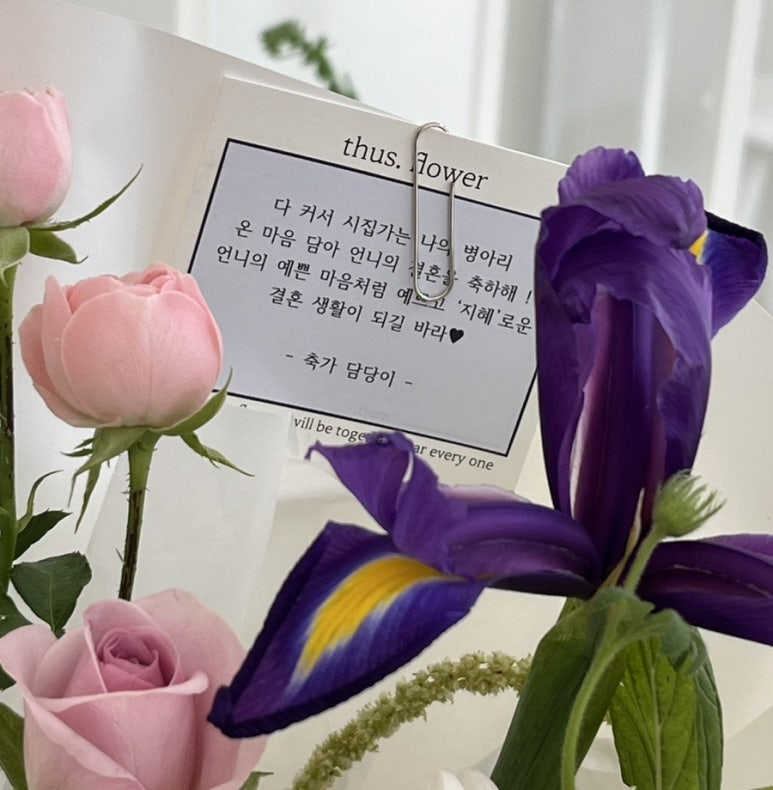 thus. flower
다 커서 시집가는 나의 병아리
온 마음 담아 언니의 결혼을 축하해 !
언니의 예쁜 마음처럼 예쁘고 ‘지혜’로운
결혼 생활이 되길 바라♥
- 축가 담당이 -
will be toge
ar every one